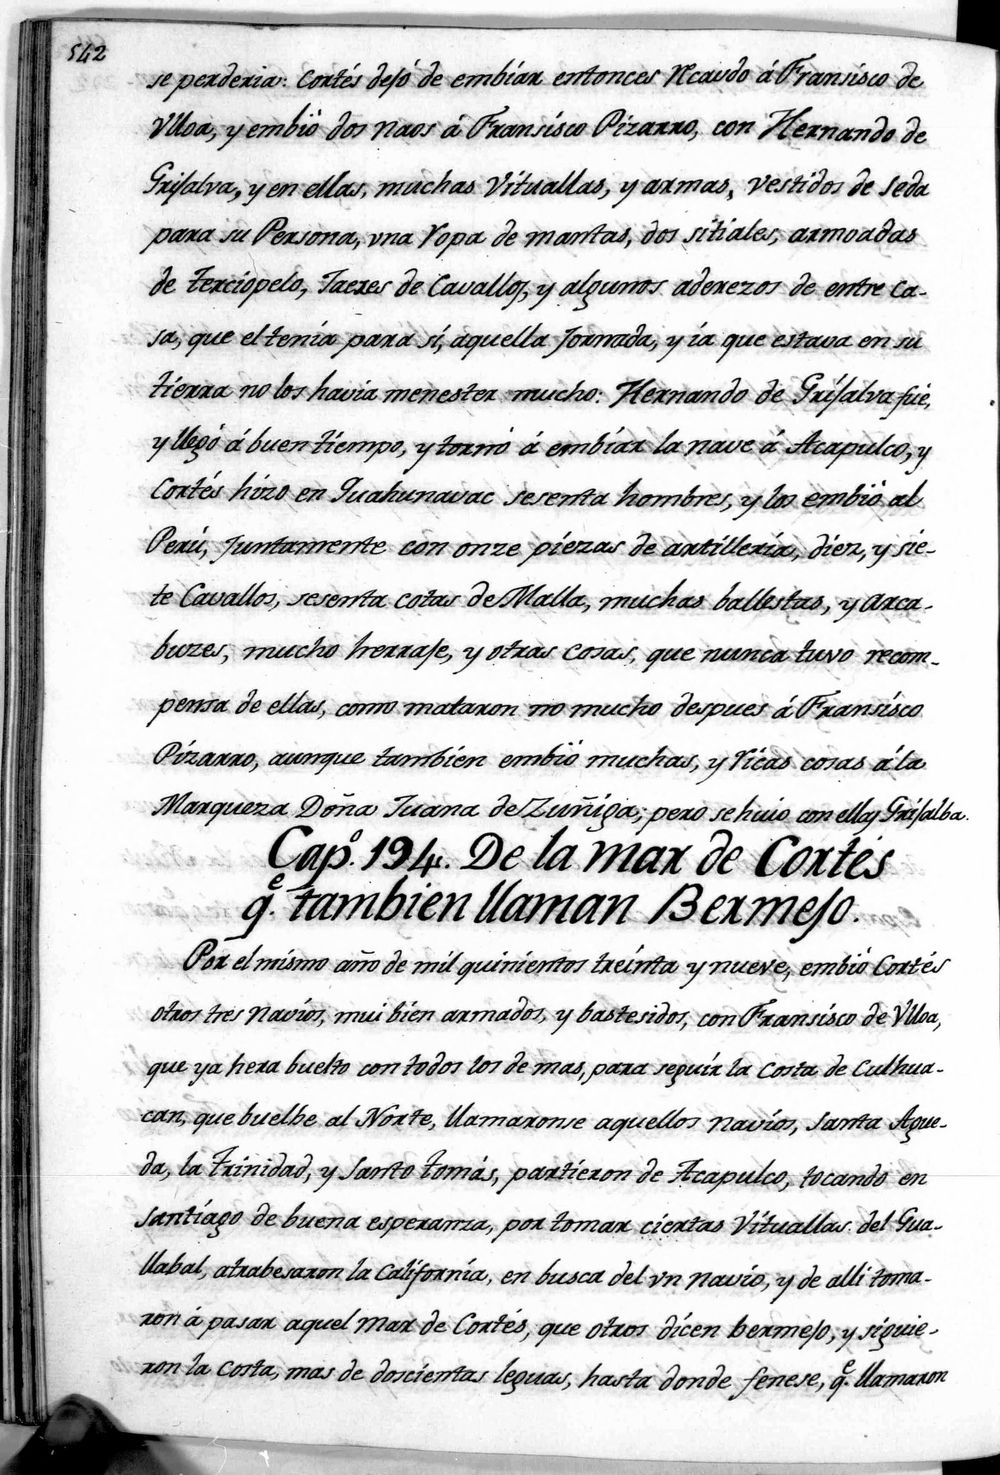 542
se perderia: Cortés dejó de embiar entonces Recaudo á Fransisco de
Vlloa, y embió dos Naos á Fransisco Pizarro, con Hernando de
Grijalva, y en ellas, muchas Vituallas, y armas, vestidos de seda
para su Persona, vna Ropa de mantas, dos sitiales, armoadas
de terciopelo, Jaezes de Cavallos, y algunos aderezos de entre Ca-
sa, que el tenia para sí, aquella Jornada, y ia que estava en su
tierra no los havia menester mucho: Hernando de Grijalva fué,
y llegó á buen tiempo, y tornó á embiar la nave á Acapulco, y
Cortés hizo en Quahunavac sesenta hombres, y los embió al
Perú, Juntamente con onze piezas de artilleria, diez, y sie-
te Cavallos, sesenta cotas de Malla, muchas ballestas, y Arca-
buzes, mucho herraje, y otras cosas, que nunca tuvo recom-
pensa de ellas, como mataron no mucho despues á Fransisco
Pizarro, aunque tambien embió muchas, y Ricas cosas á la
Marqueza Doña Juana de Zuñiga; pero se huio con ellas Grijalba.
Capº. 194. De la mar de Cortés
q.e tambien llaman Bermejo.
Por el mismo año de mil quinientos treinta y nueve, embió Cortés
otros tres Navios, mui bien armados, y bastesidos, con Fransisco de Vlloa,
que ya hera buelto con todos los de mas, para seguir la Costa de Culhua-
can, que buelbe al Norte, llamaronse aquellos navios, Santa Ague-
da, la Trinidad, y Santo Tomás, partieron de Acapulco, tocando en
Santiago de buena esperanza, por tomar ciertas Vituallas del Gua-
llabal, atrabesaron la California, en busca del vn navio, y de alli toma-
ron á pasar aquel Mar de Cortés, que otros dicen bermejo, y siguie-
ron la Costa, mas de doscientas leguas, hasta donde fenese, q.e llamaron